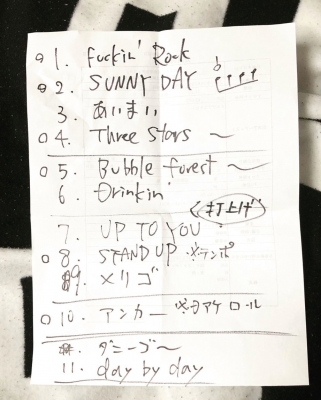 ○ 1. Fuckin' Rock
○ 2. SUNNY DAY
3. あいまい
○ 4. Three Stars ～
○ 5. Bubble forest ～
6. Drinkin'
<打上げ
7. UP TO YOU
○ 8. STAND UP ※テンポ
9. メリゴ
○ 10. アンカー ※タアケロール
ダニーゴ～
11. day by day